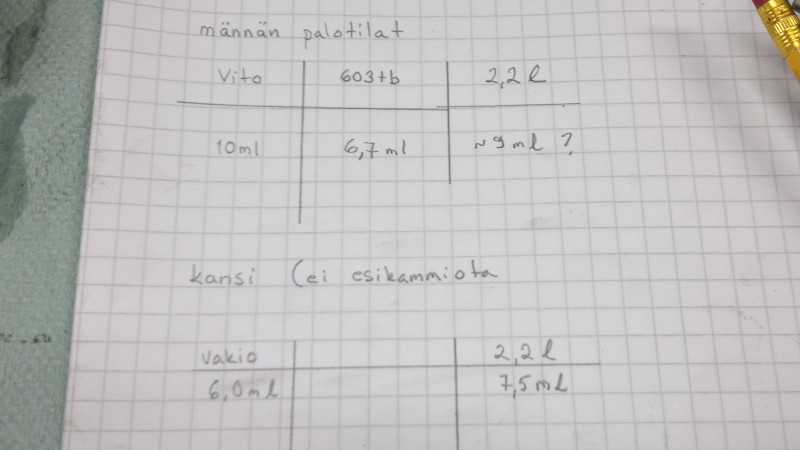 männän palotilat
Vito 603+b 2,2 l
10ml 6,7 ml ~9 ml ?
kansi (ei esikammiota
vakio 2,2 l
6,0ml 7,5ml